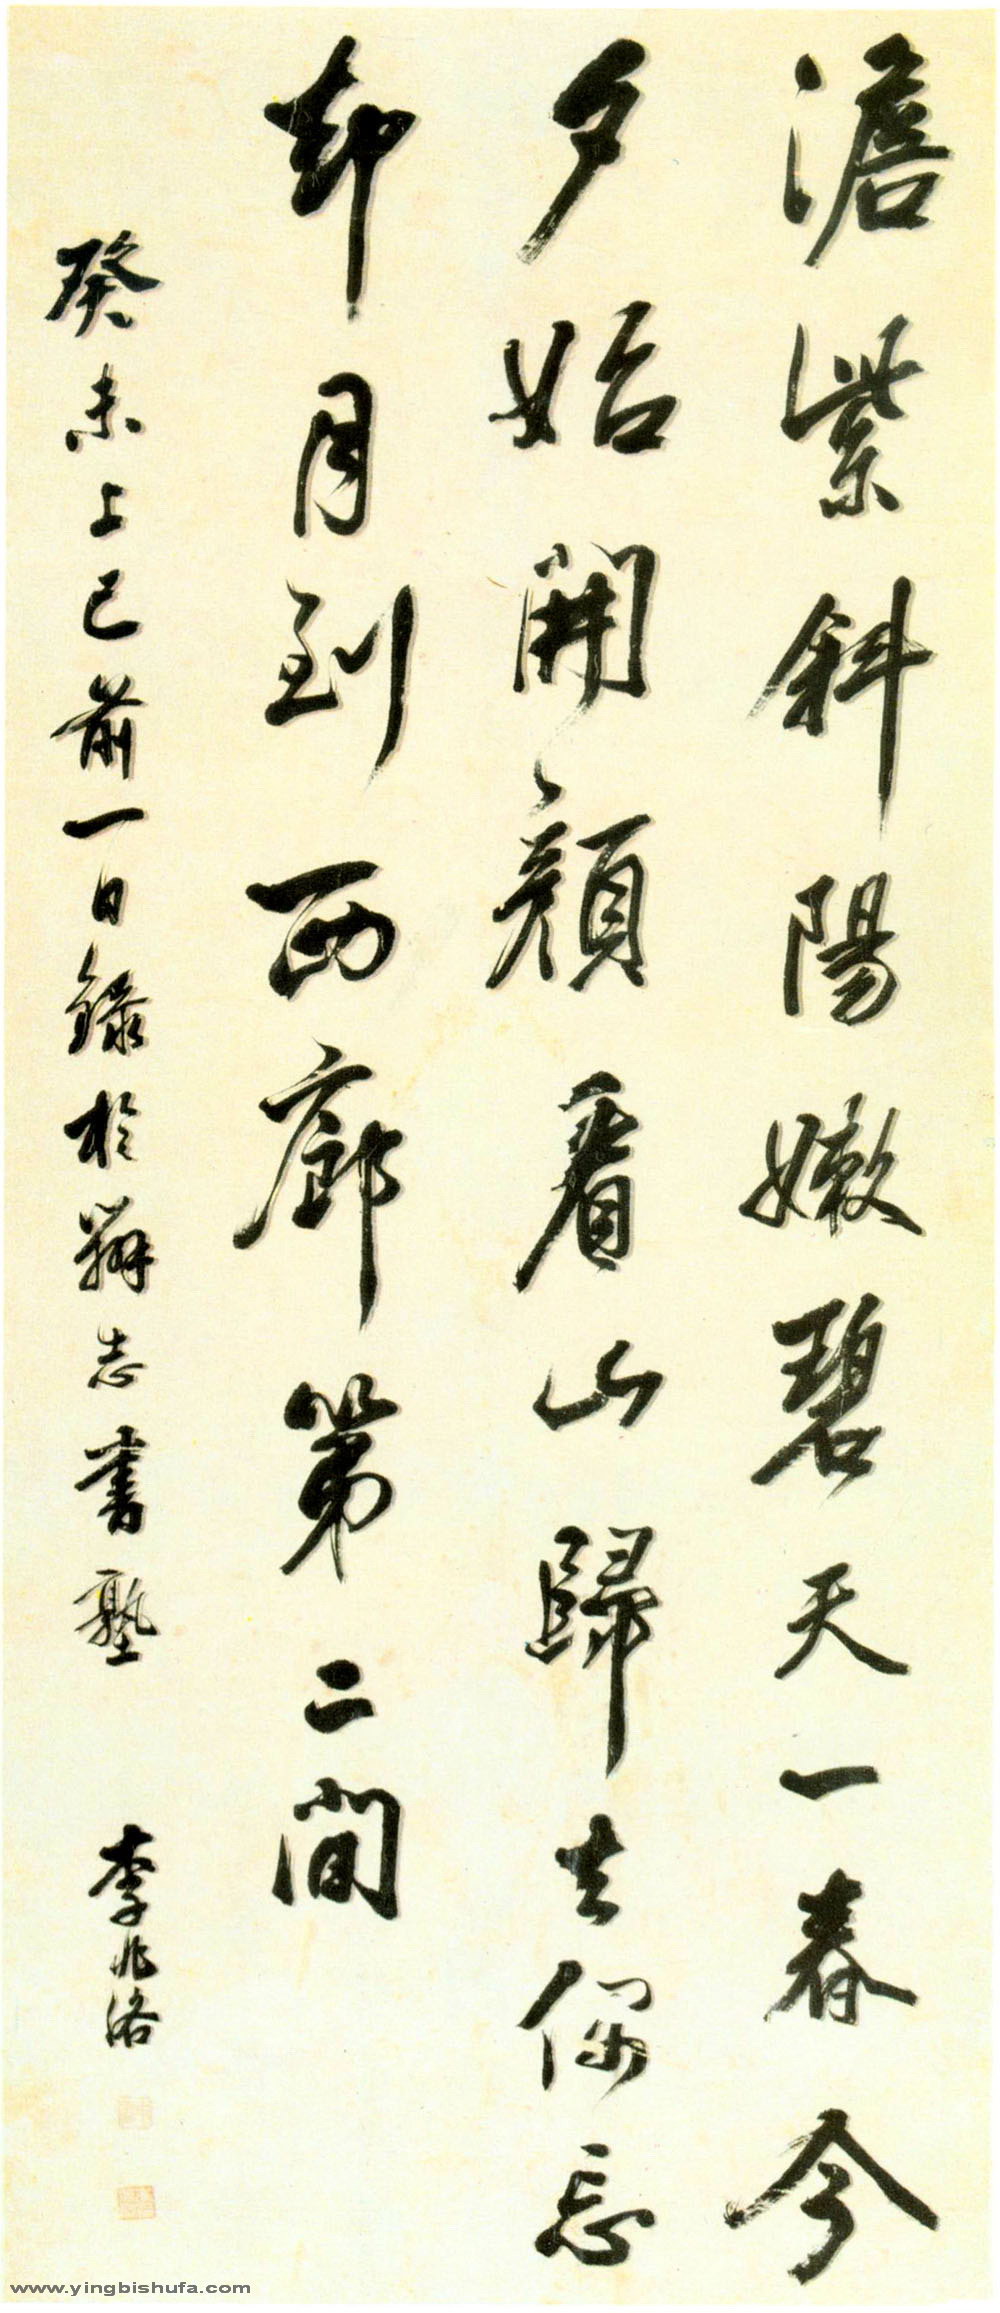 澹紫斜陽嫩碧天一春今
夕始開顏看山歸去偶忘
却月到西廊第二間
癸未上巳前一日錄於辨志書塾
李兆洛
www.yingbishufa.com